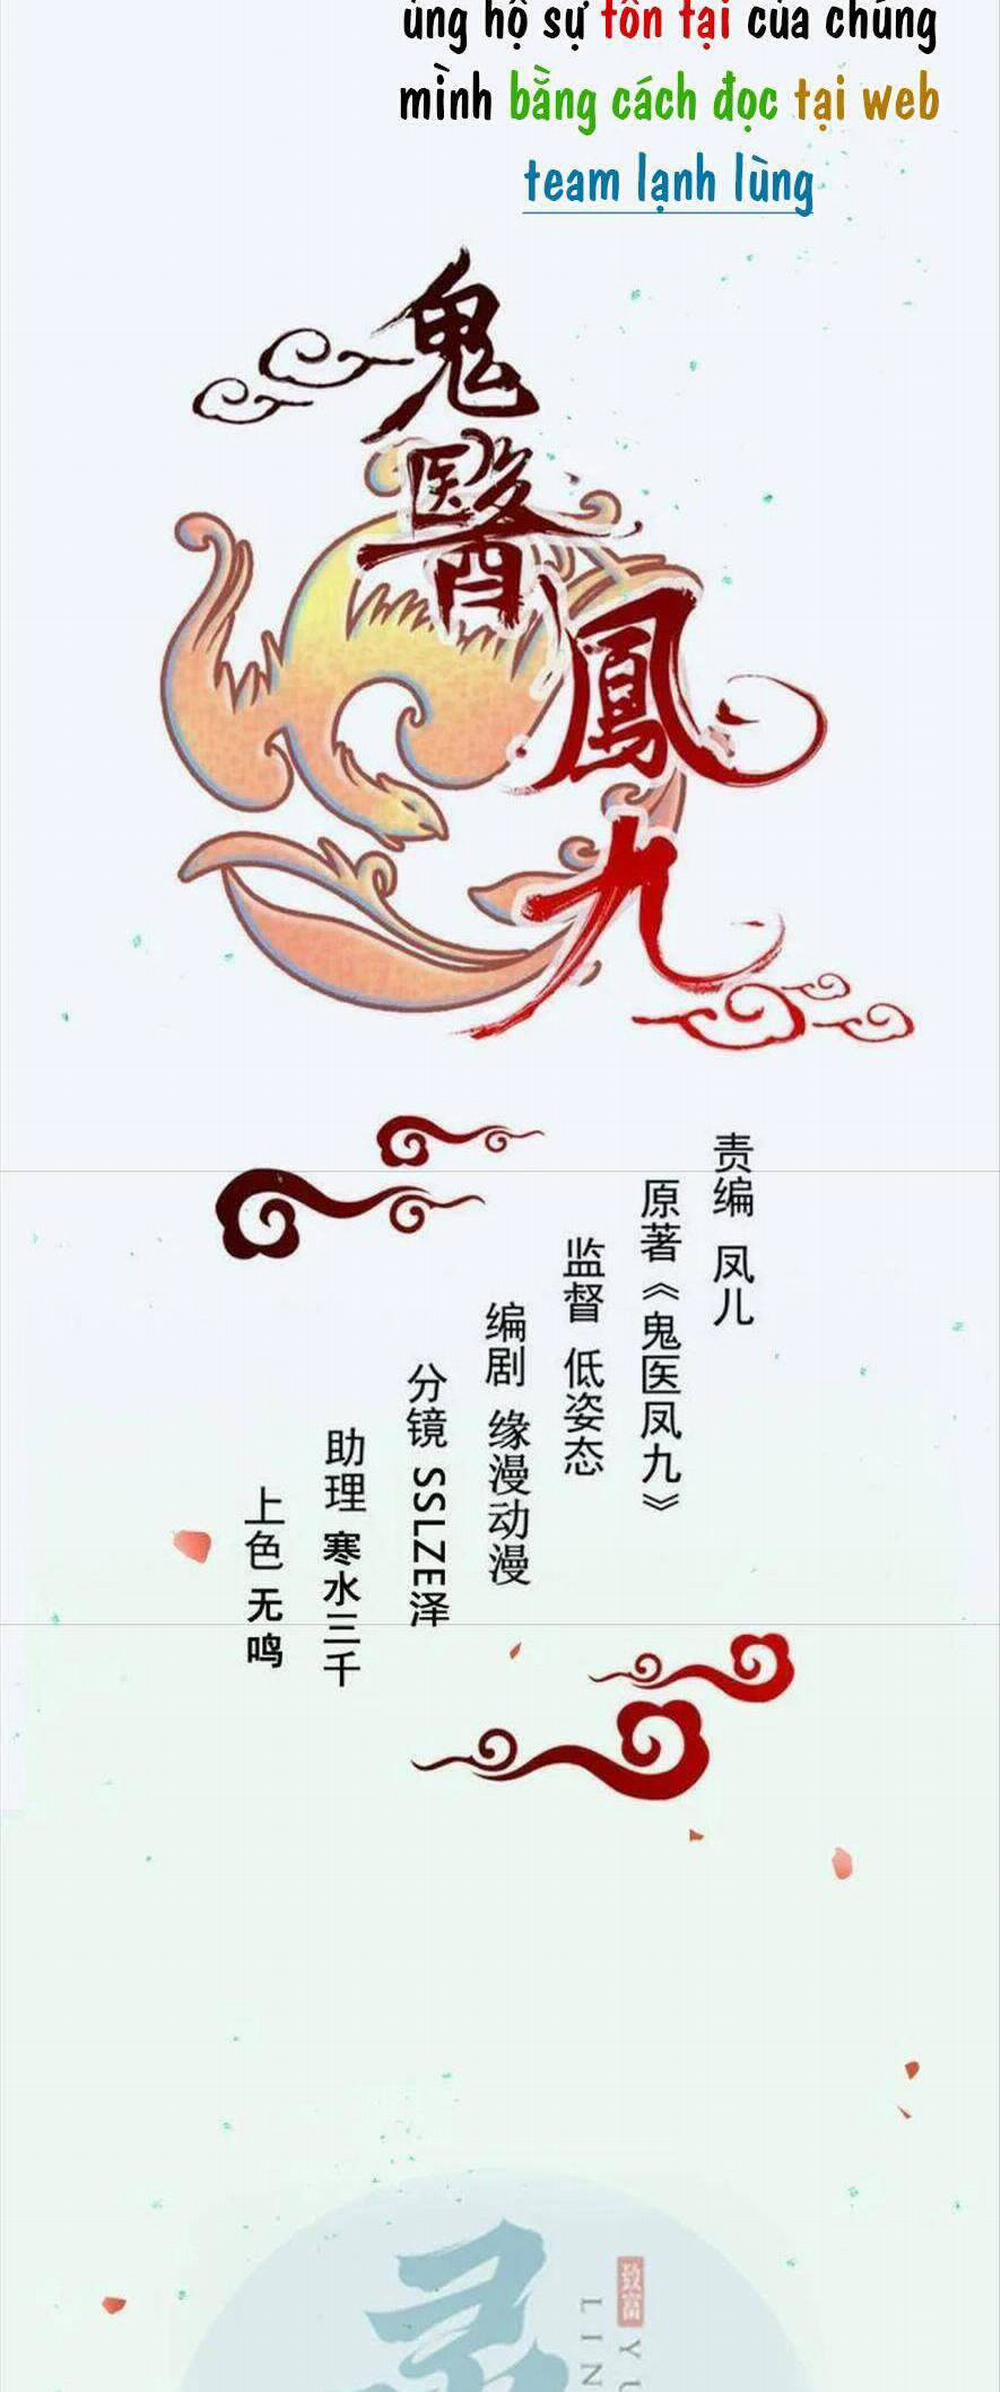 ủng hộ sự tồn tại của chúng
mình bằng cách đọc tại web
team lạnh lùng
鬼醫鳳九
责编 凤儿
原著《鬼医凤九》
监督 低姿态
编剧 缘漫动漫
分镜 SSLZE泽
助理 寒水三千
上色 无鸣
致富
YU
LIN
灵